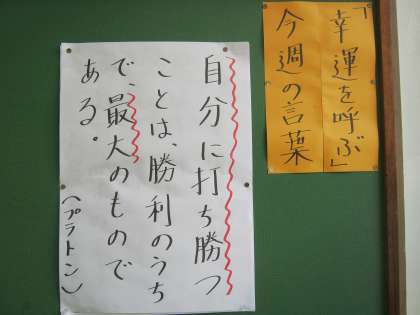 「幸運を呼ぶ」
今週の言葉
自分に打ち勝つ
ことは、勝利のうち
で、最大のもので
ある。
(プラトン)